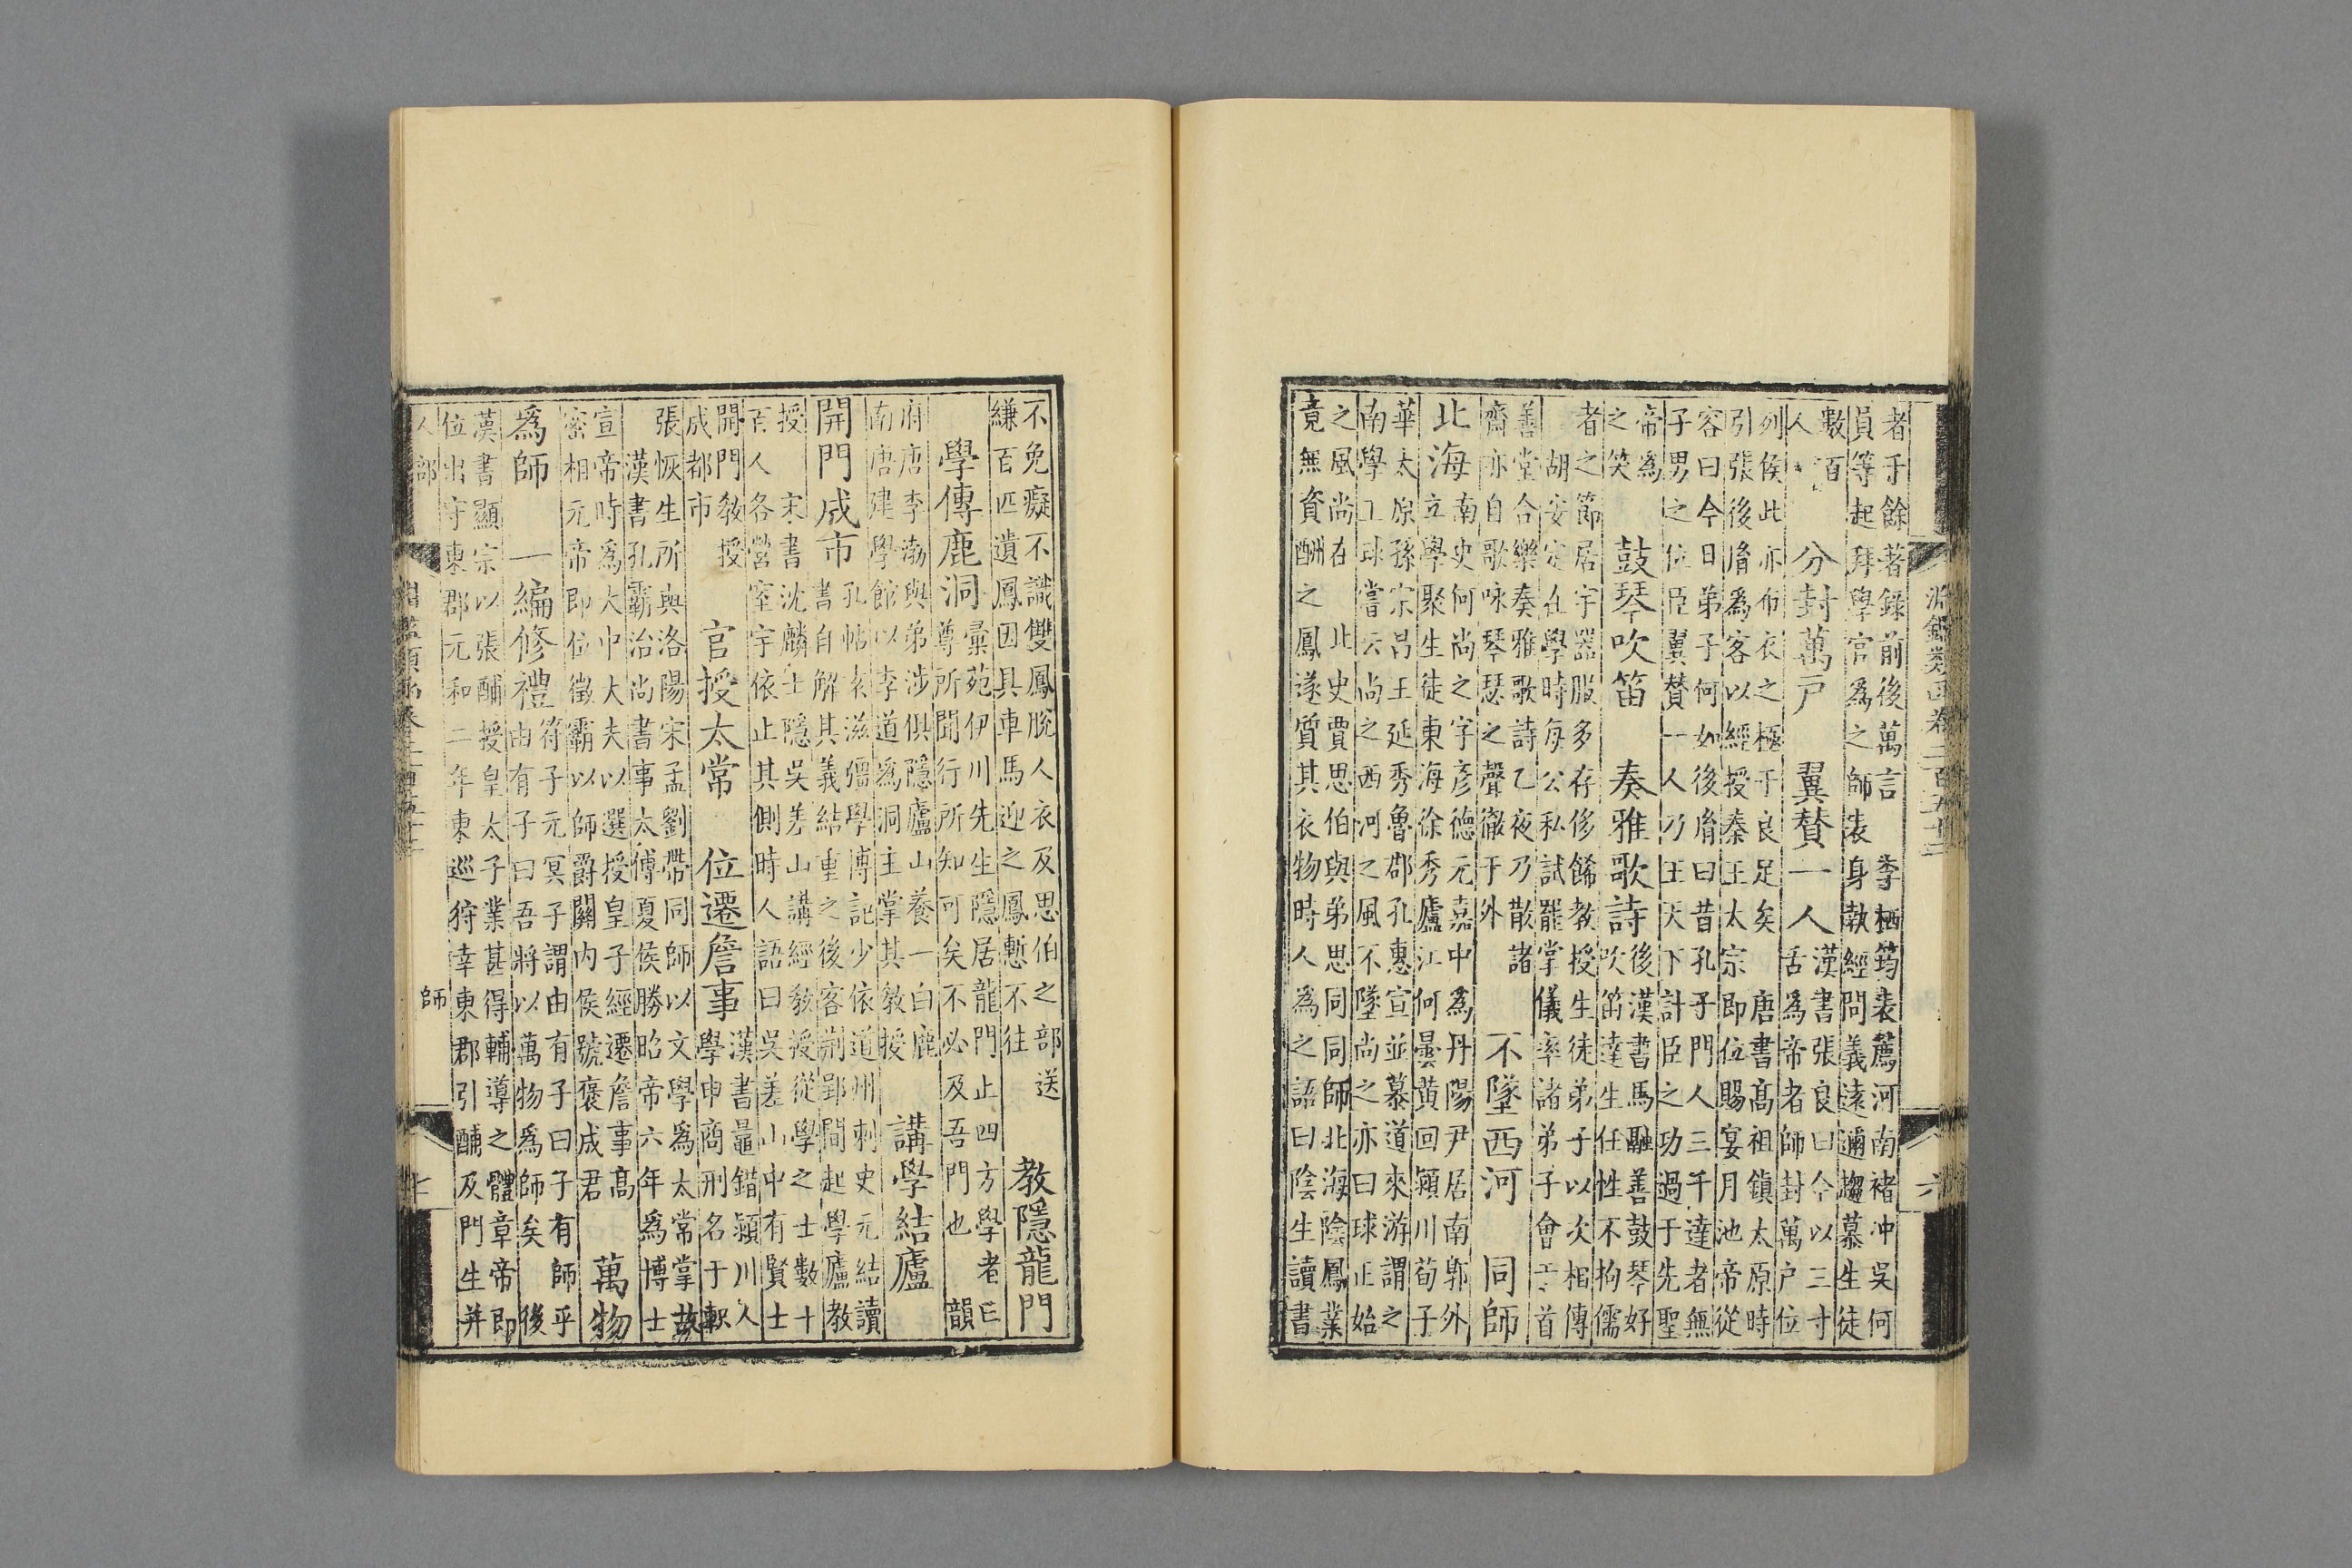 淵鑑類函卷二百五十二 六
者于餘著錄前後萬言 李栖筠表薦河南褚冲吳何
員等起拜學官爲之師表身執經問義遠邇趨慕生徒
數百
人
分封萬戸 翼賛一人
漢書張良曰今以三寸
舌爲帝者師封萬戸位
列侯此亦布衣之極于良足矣 唐書高祖鎮太原時
引張後胤爲客以經授秦王太宗即位賜宴月池帝從
容曰今日弟子何如後胤曰昔孔子門人三千達者無
子男之位臣翼賛一人乃王天下計臣之功過于先聖
帝爲
之笑
鼓琴吹笛 奏雅歌詩
後漢書馬融善鼓琴好
吹笛達生任性不拘儒
者之節居宇器服多存侈餙教授生徒弟子以次相傳
胡安定在學時每公私試罷掌儀率諸弟子會于首
善堂合樂奏雅歌詩乙夜乃散諸
齋亦自歌咏琴瑟之聲徹于外
不墜西河 同師
北海
南史何尚之字彦德元嘉中爲丹陽尹居南郭外
立學聚生徒東海徐秀廬江何曇黄回潁川荀子
華太原孫宗昌王延秀魯郡孔惠宣並慕道來游謂之
南學王球嘗云尚之西河之風不墜尚之亦曰球正始
之風尚在 北史賈思伯與弟思同同師北海陰鳳業
竟無資酬之鳳遂質其衣物時人爲之語曰陰生讀書
不免癡不識雙鳳脫人衣及思伯之部送
縑百匹遺鳳因具車馬迎之鳳慙不往
教隱龍門
學傳鹿洞
彙苑伊川先生隱居龍門止四方學者曰
尊所聞行所知可矣不必及吾門也 韻
府唐李渤與弟涉俱隱廬山養一白鹿
南唐建學館以李道爲洞主掌其教授
講學結廬
開門成市
孔帖袁滋彊學博記少依道州刺史元結讀
書自解其義結重之後客荆郢間起學廬教
授 宋書沈麟士隱吳差山講經教授從學之士數十
百人各營室宇依止其側時人語曰吳差山中有賢士
開門教授
成都市
官授太常 位遷詹事
漢書鼂錯潁川人
學申商刑名于軹
張恢生所與洛陽宋孟劉帶同師以文學爲太常掌故
漢書孔霸治尚書事太傅夏侯勝昭帝六年爲博士
宣帝時爲大中大夫以選授皇子經遷詹事高
密相元帝即位徵霸以師爵關内侯號褒成君
萬物
爲師 一編修禮
符子子元冥子謂由有子曰子有師乎
由有子曰吾將以萬物爲師矣 後
漢書顯宗以張酺授皇太子業甚得輔導之體章帝即
位出守東郡元和二年東巡狩幸東郡引酺及門生并
人部 師
淵鑑類函卷二百五十二 七